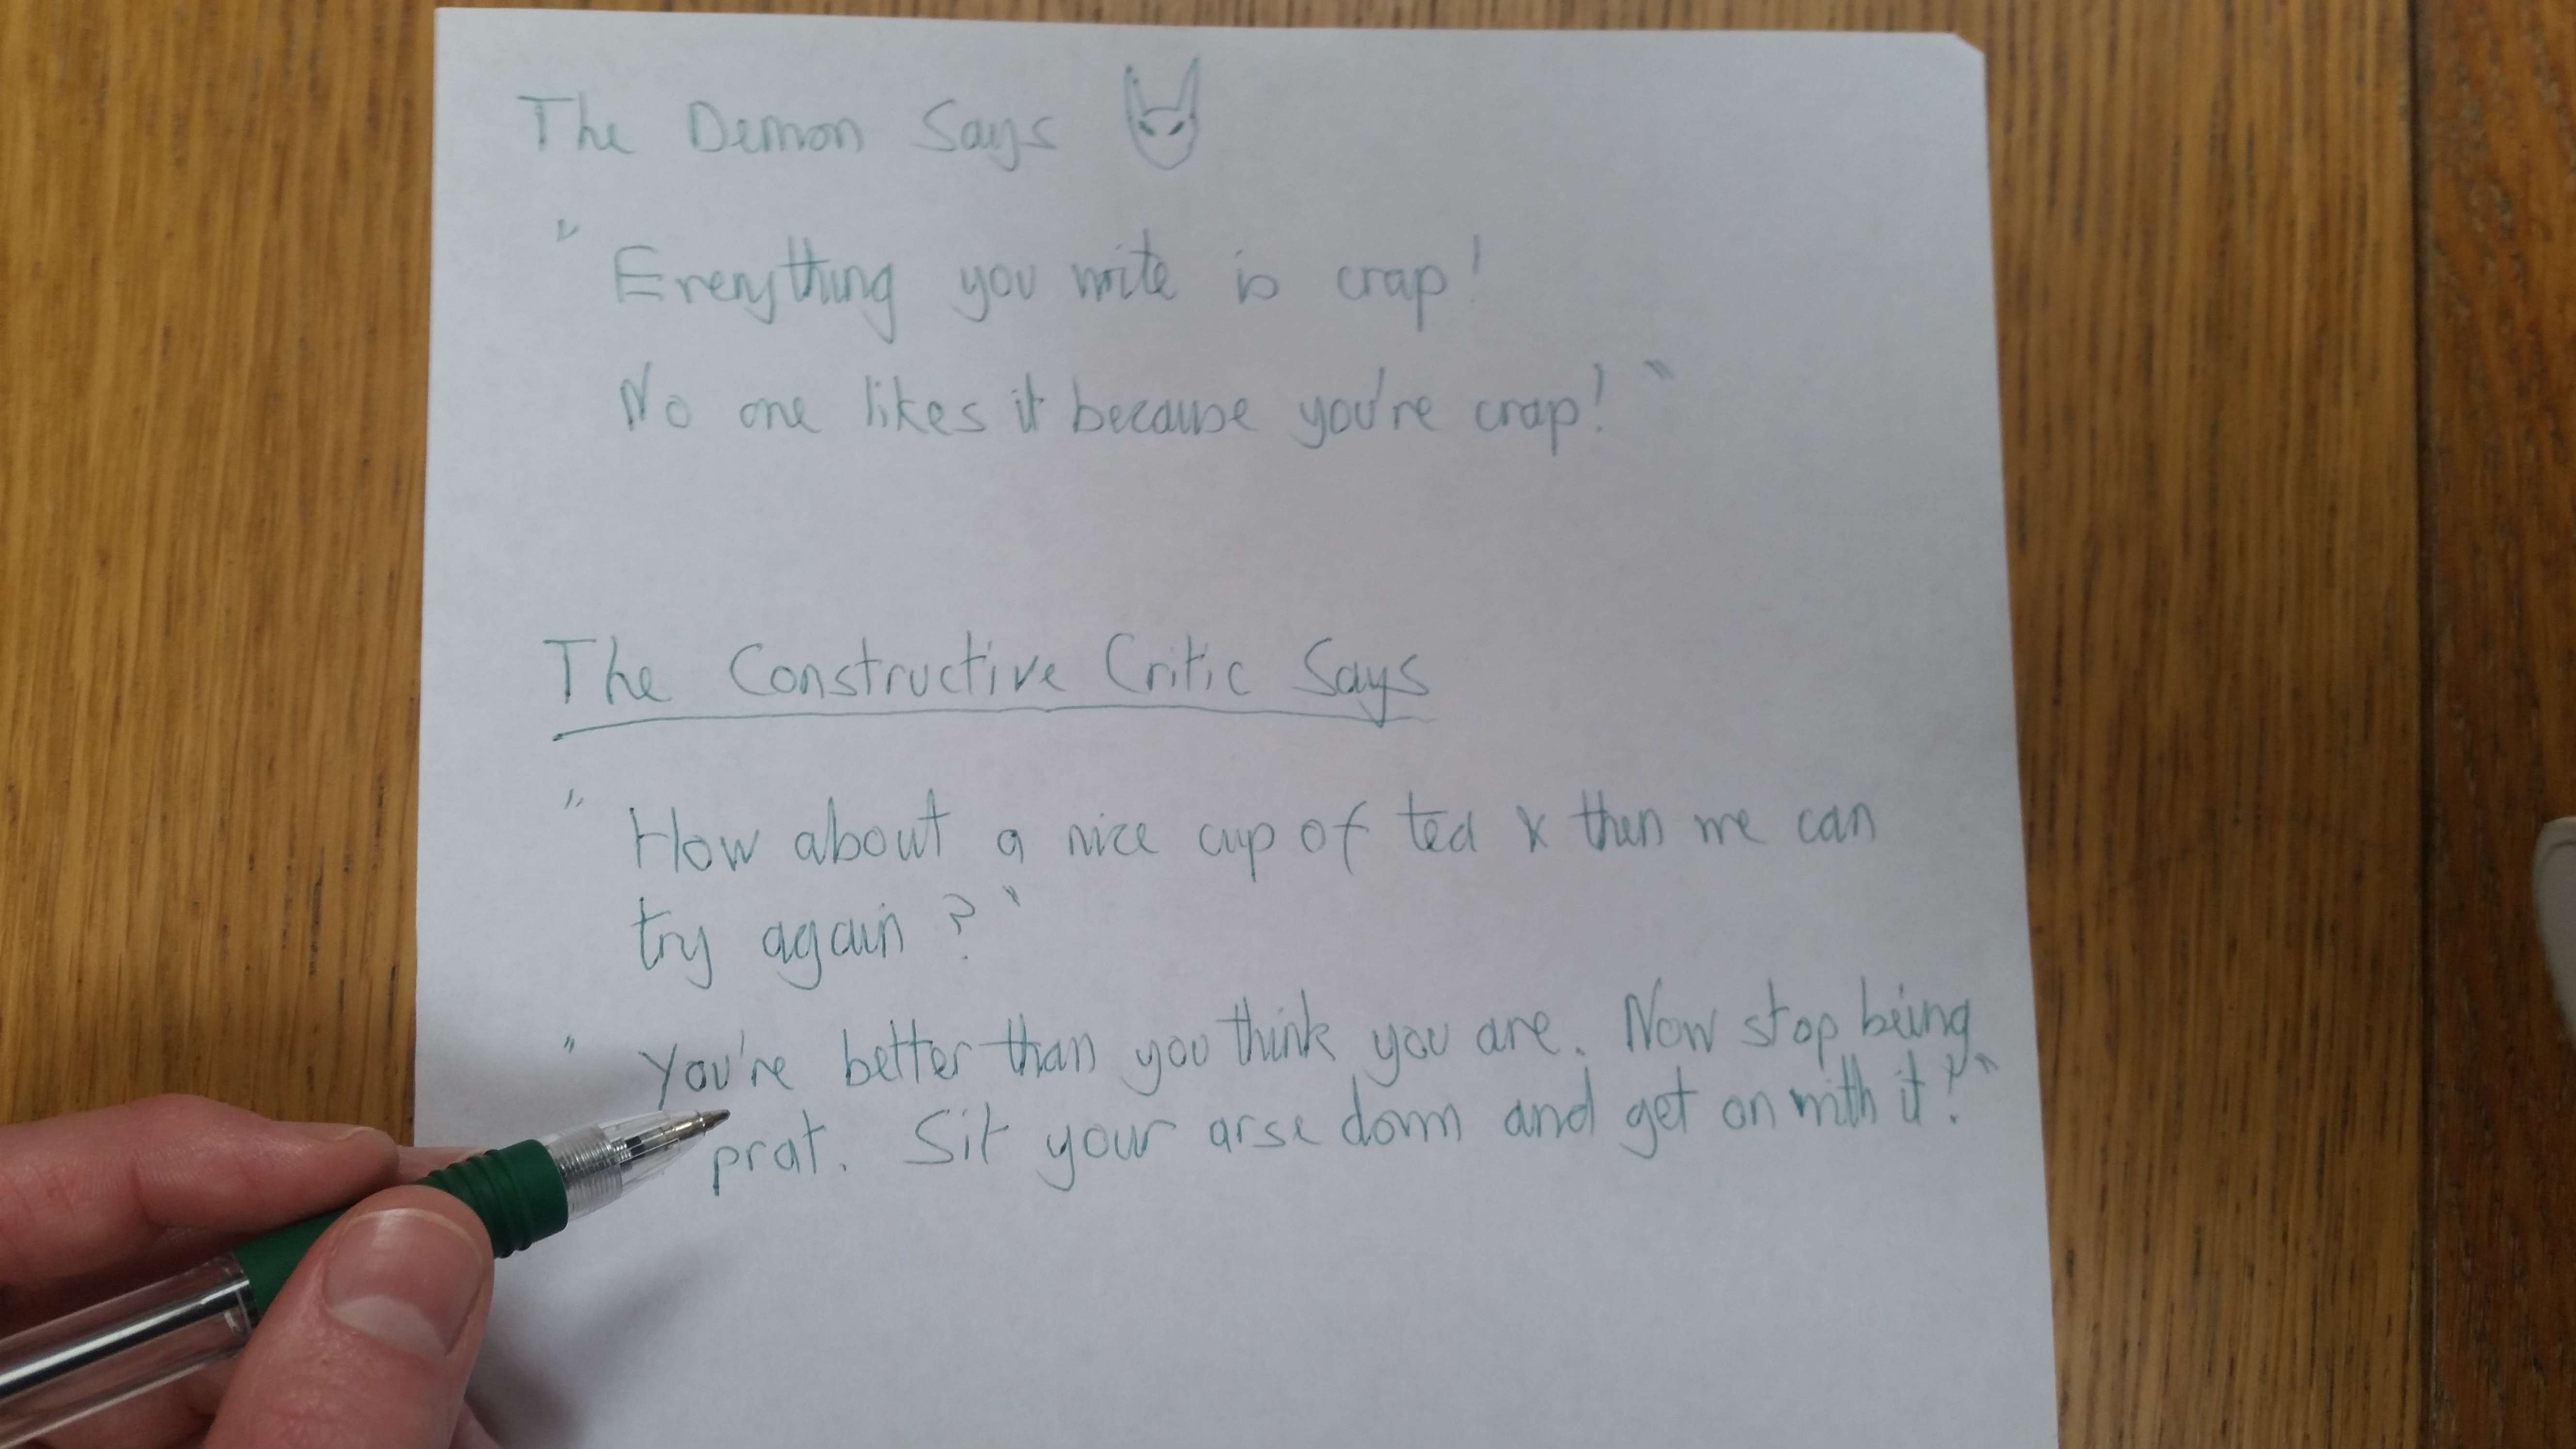 The Demon Says
"Everything you write is crap!
No one likes it because you're crap!"
The Constructive Critic Says
"How about a nice cup of tea & then we can
try again?"
"You're better than you think you are. Now stop being
prat. Sit your arse down and get on with it!"